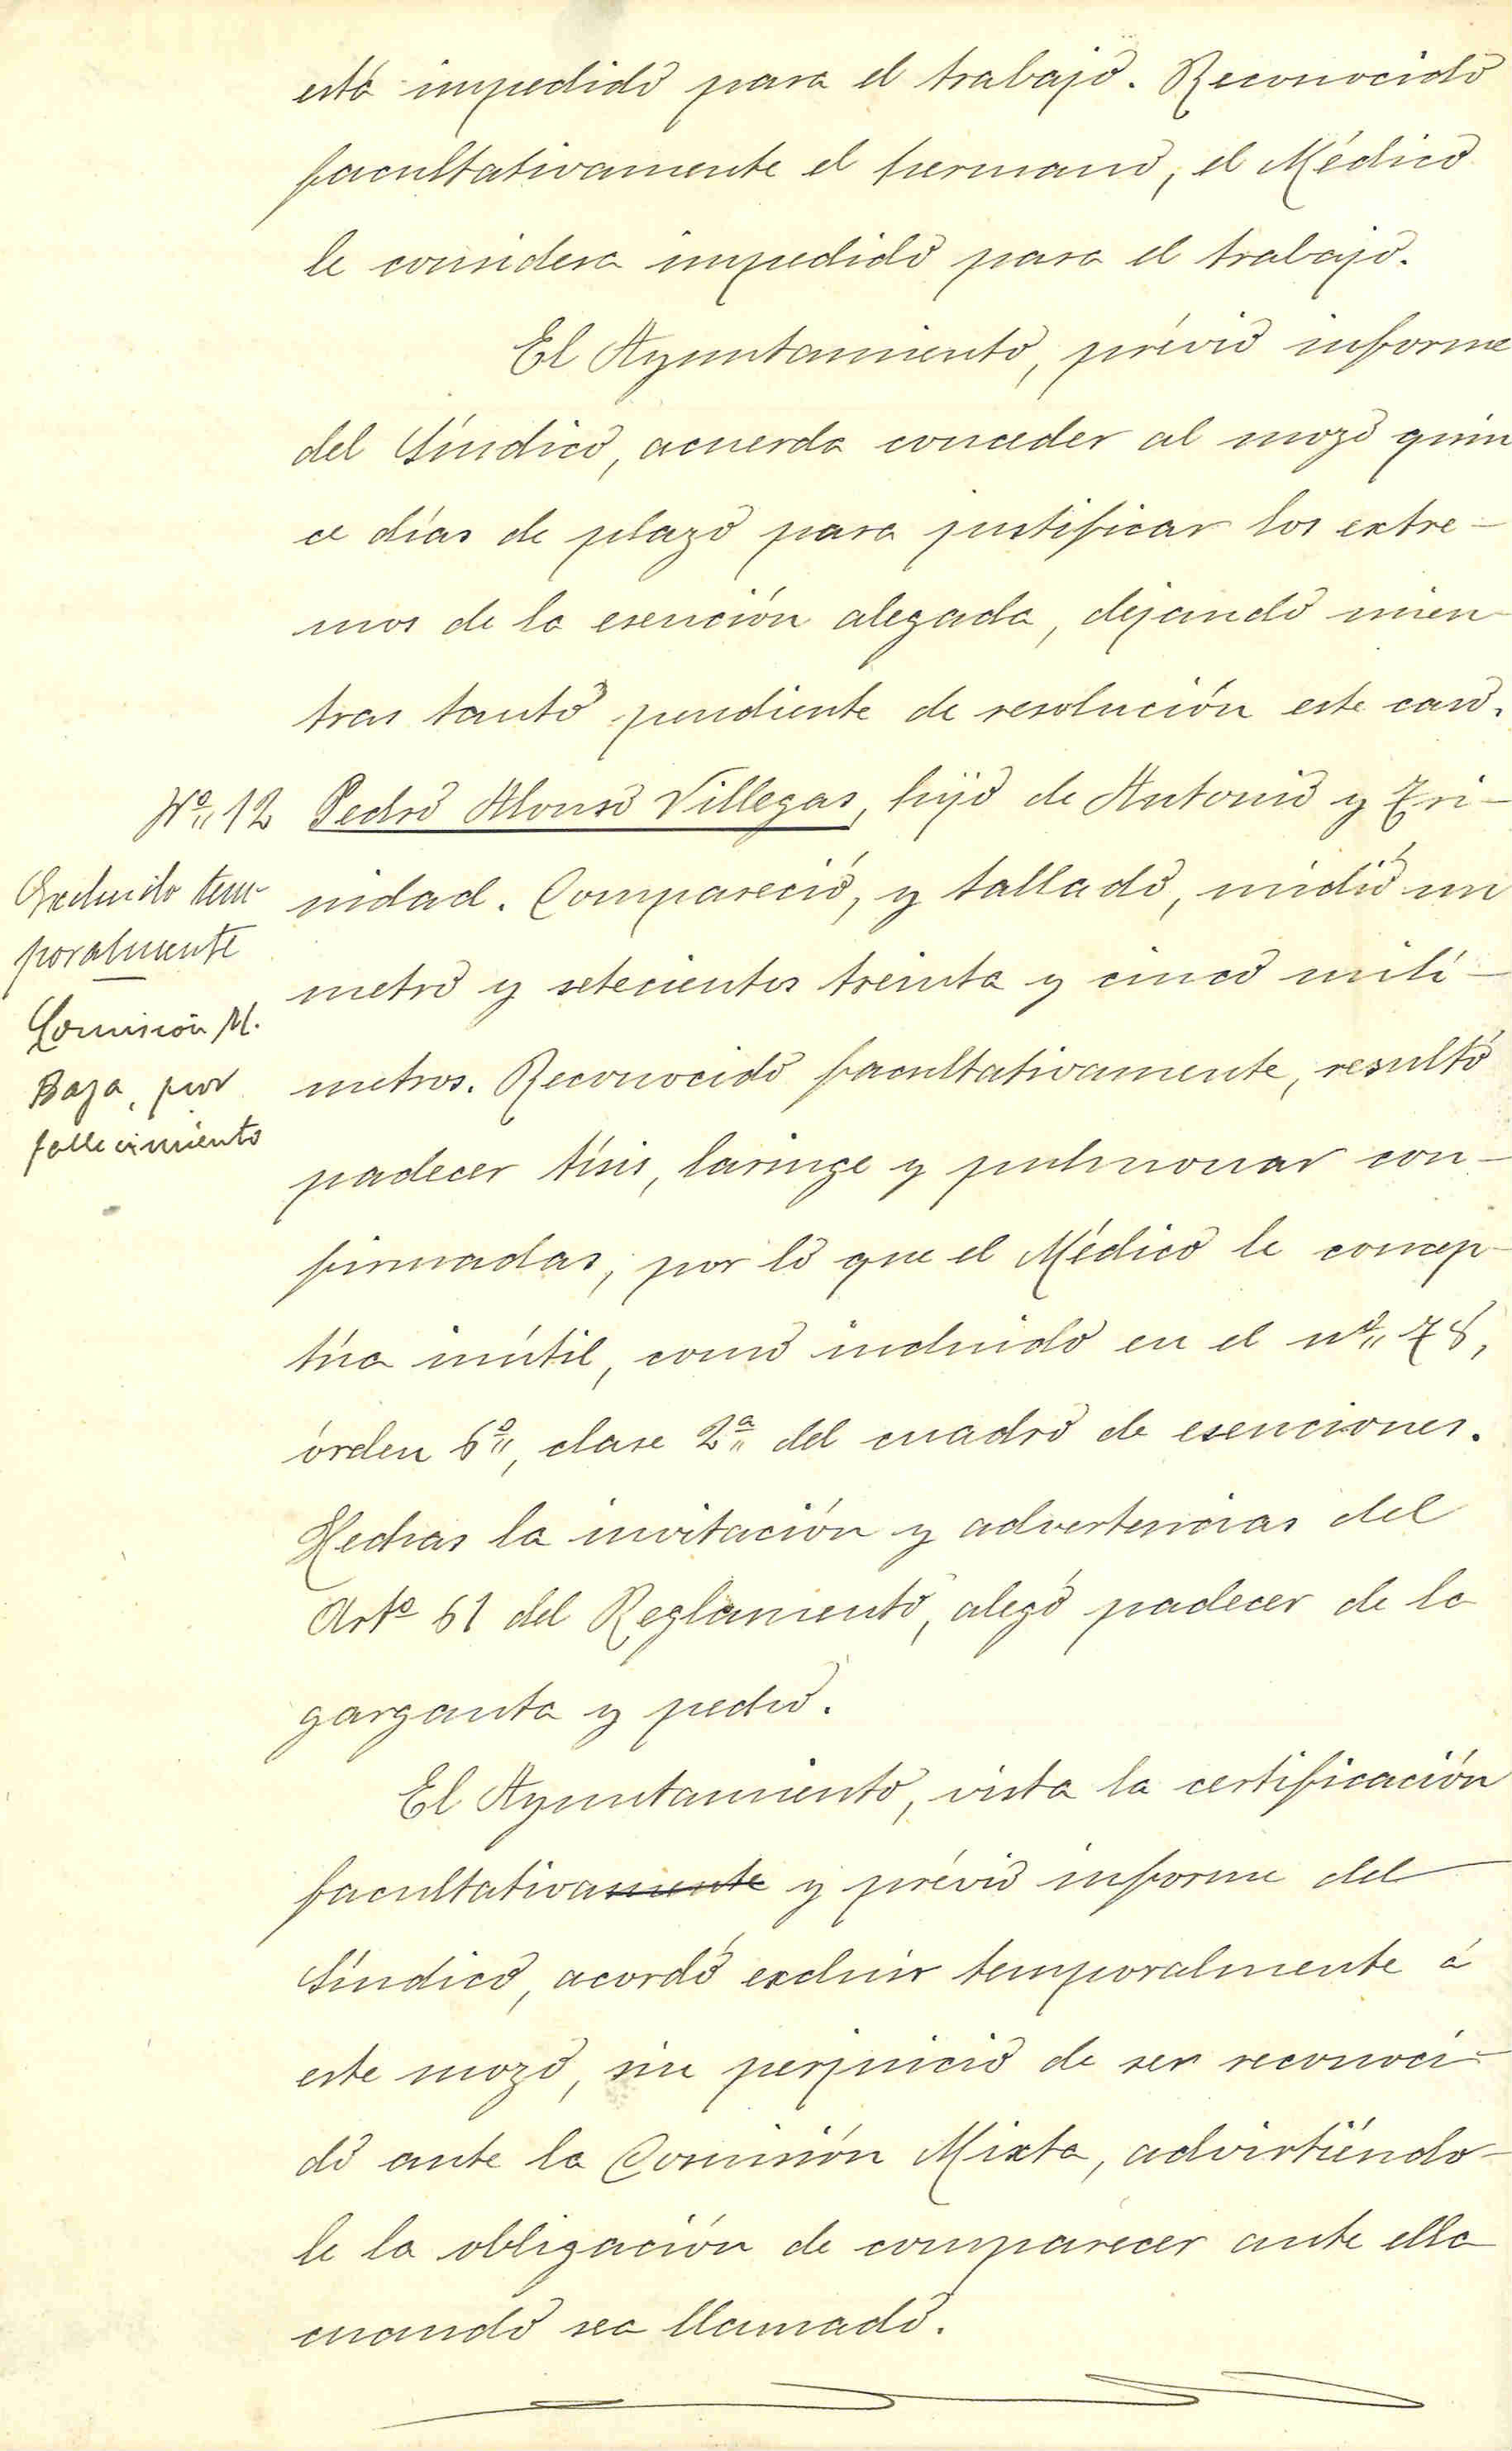 está impedido para el trabajo. Reconocido
facultativamente el hermano, el Médico
le considera impedido para el trabajo.
El Ayuntamiento, prévio informe
del Síndico, acuerda conceder al mozo quin
ce días de plazo para justificar los extre-
mos de la esención alegada, dejando mien-
tras tanto pendiente de resolución este caso.
Nº 12 Pedro Alonso Villegas, hijo de Antonio y Tri-
nidad. Compareció, y tallado, midió un
metro y setecientos treinta y cinco milí-
metros. Reconocido facultativamente, resultó
padecer tísis, laringe y pulmonar con-
firmadas, por lo que el Médico le concep-
túa inútil, como incluido en el nº 78,
órden 6º, clase 2ª del cuadro de esenciones.
Hechas la invitación y advertencias del
Artº 61 del Reglamento, alegó padecer de la
garganta y pecho.
El Ayuntamiento, vista la certificación
facultativamente y prévio informe del
Síndico, acordó excluir temporalmente á
este mozo, sin perjuicio de ser reconoci-
do ante la Comisión Mixta, advirtiéndo-
le la obligación de comparecer ante ella
cuando sea llamado.
Excluido tem-
poralmente
Comisión M.
Baja, por
fallecimiento